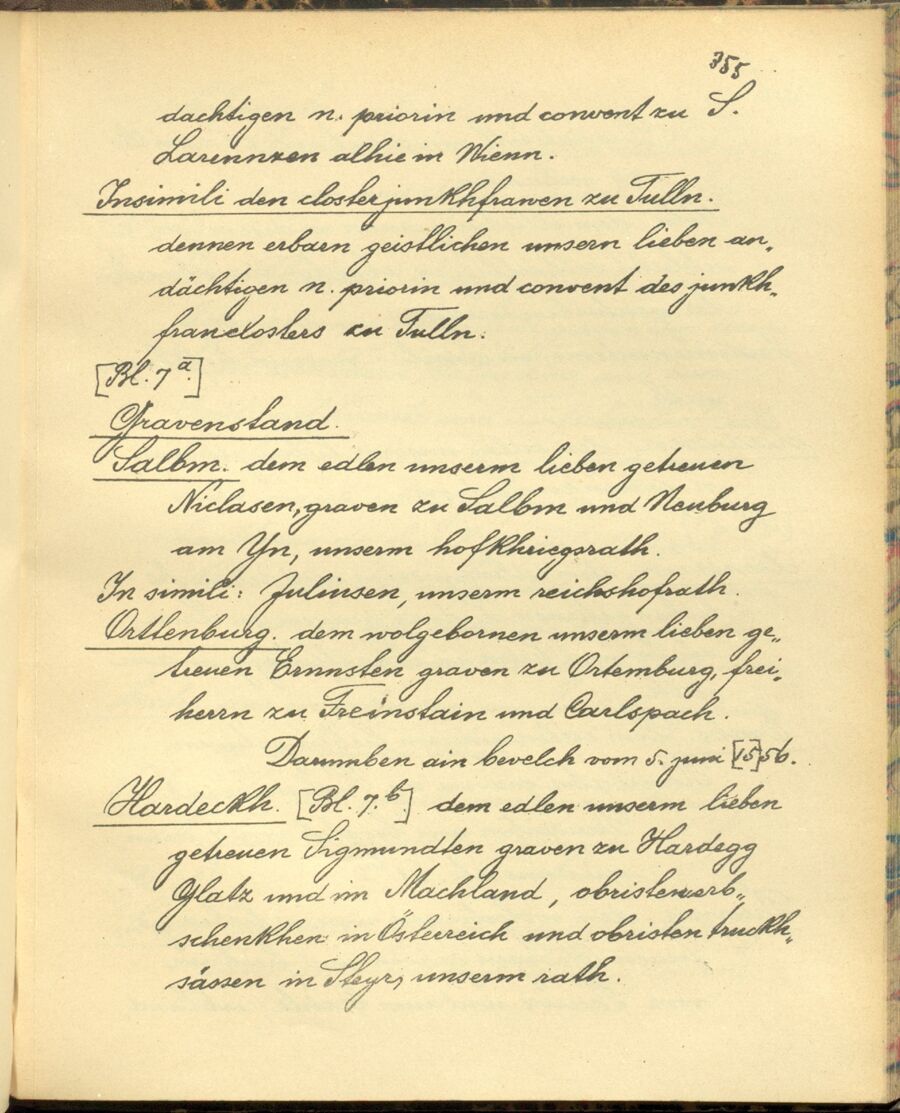 355
dachtigen n. priorin und convent zu S.
Larennzen alhie in Wienn.
Insimili den closterjunkhfrawen zu Tulln.
dennen erbarn geistlichen unsern lieben an„
dächtigen n. priorin und convent des junkh„
franclosters zu Tulln.
[Bl. 7a.]
Gravenstand.
Salbm. dem edlen unserm lieben getreuen
Niclasen, graven zu Salbm und Neuburg
am Yn, unserm hofkhriegsrath.
In simili: Juliusen, unserm reichshofrath.
Orttenburg. dem wolgebornen unserm lieben ge„
treuen Ernnsten graven zu Ortemburg, frei„
herrn zu Freinstain und Carlspach.
Darumben ain bevelch vom 5. juni [15]56.
Hardeckh. [Bl. 7.b] dem edlen unserm lieben
getreuen Sigmundten graven zu Hardegg
Glatz und im Machland, obristenerb„
schenkhen in Österreich und obristen truckh„
sässen in Steyr, unserm rath.